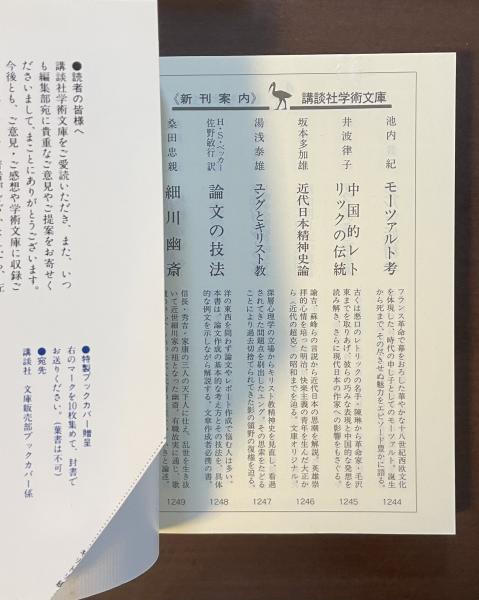 ●読者の皆様へ
講談社学術文庫をご愛読いただき、また、いつ
も編集部宛に貴重なご意見やご提案をお寄せく
ださいまして、まことにありがとうございます。
今後とも、ご意見・ご感想や学術文庫に収録ご
●特製ブックカバー贈呈
右のマークを10枚集めて、封書で
お送りください。(葉書は不可)
●宛先
講談社 文庫販売部ブックカバー係
講談社学術文庫
《新刊案内》
池内 紀
モーツァルト考
フランス革命で幕をおろした華やかな十八世紀西欧文化
を体現した、時代の申し子としてのモーツァルト。誕生
から死まで、その尽きせぬ魅力をエピソード豊かに語る。
1244
井波律子
中国的レト
リックの伝統
古くは悪口のレトリックの名手・陳琳から革命家・毛沢
東までを取りあげ、彼らの巧みな表現と中国的な発想を
読み解き、さらに現代日本の作家への影響をもさぐる。
1245
坂本多加雄
近代日本精神史論
諭吉、蘇峰らの言説から近代日本の思潮を解説。英雄崇
拝的心情を培った明治、快楽主義の青年を生んだ大正か
ら〈近代の超克〉の昭和までを辿る。文庫オリジナル。
1246
湯浅泰雄
ユングとキリスト教
深層心理学の立場からキリスト教精神史を見直し、看過
されてきた問題点を剔出したユング。その思索をたどる
ことにより過去切捨てられてきた影の領野の復権を迫る。
1247
H・S・ベッカー
佐野敏行 訳
論文の技法
洋の東西を問わず論文やレポート作成で悩む人は多い。
本書は、論文作成の基本的な考え方とその技法を、具体
的な例文を示しながら解説する。文章作成者必携の書。
1248
桑田忠親
細川幽斎
信長・秀吉・家康の三人の天下人に仕え、乱世を生き抜
いて近世細川家の祖となった幽斎。有職故実に通じ、歌
1249